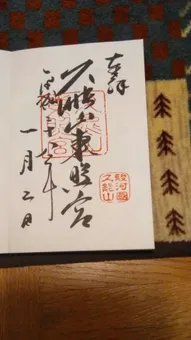 奉拝
駿河國
久能山
久能山東照宮
平成二十 年
一月二日